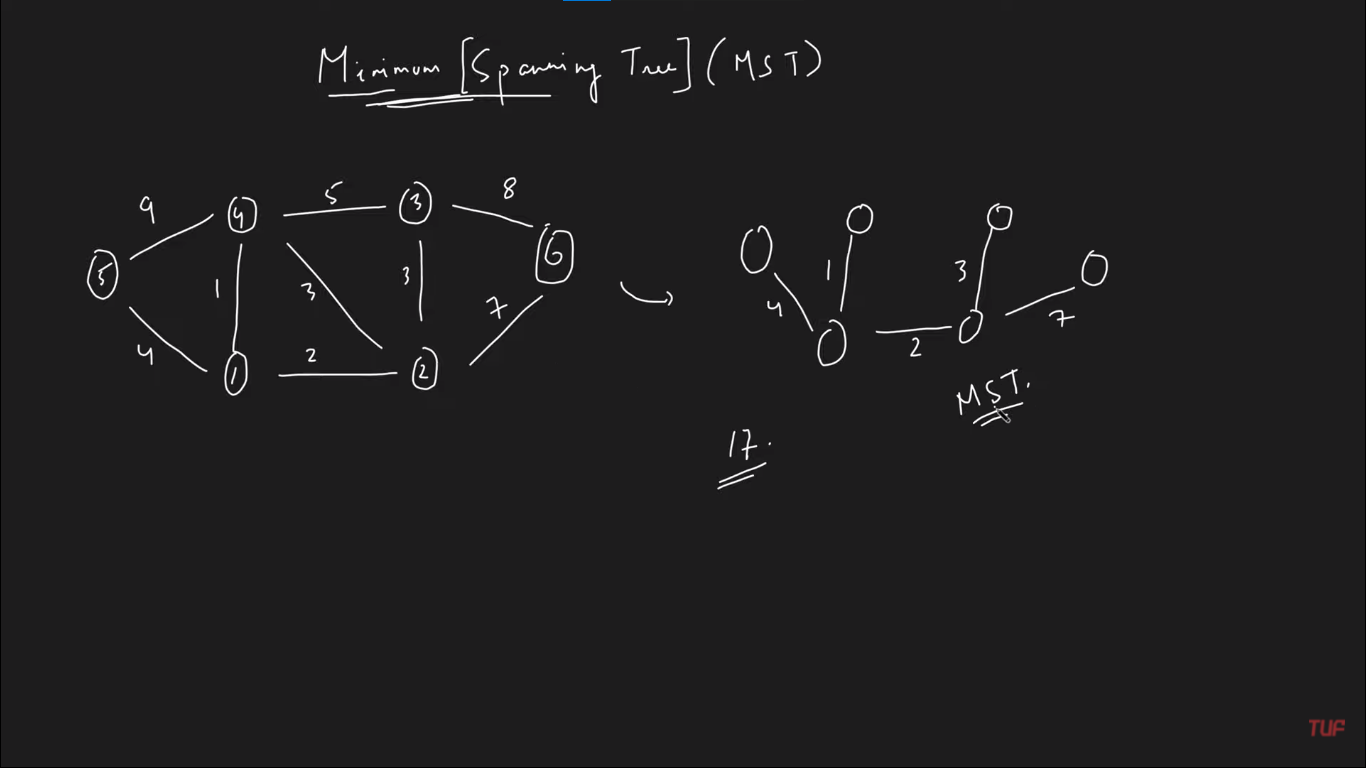 Minimum [Spanning Tree] (MST)
9 5 8
4 3 6
5 1 3 3 7
4 2
1 2
1 3
4 2 7
MST.
17.
TUF